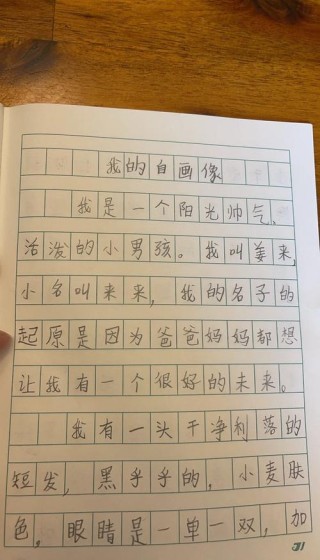 我的自画像
我是一个阳光帅气、
活泼的小男孩。我叫姜来,
小名叫来来，我的名子的
起原是因为爸爸妈妈都想
让我有一个很好的未来。
我有一头干净利落的
短发，黑乎乎的，小麦肤
色，眼睛是一单一双，加